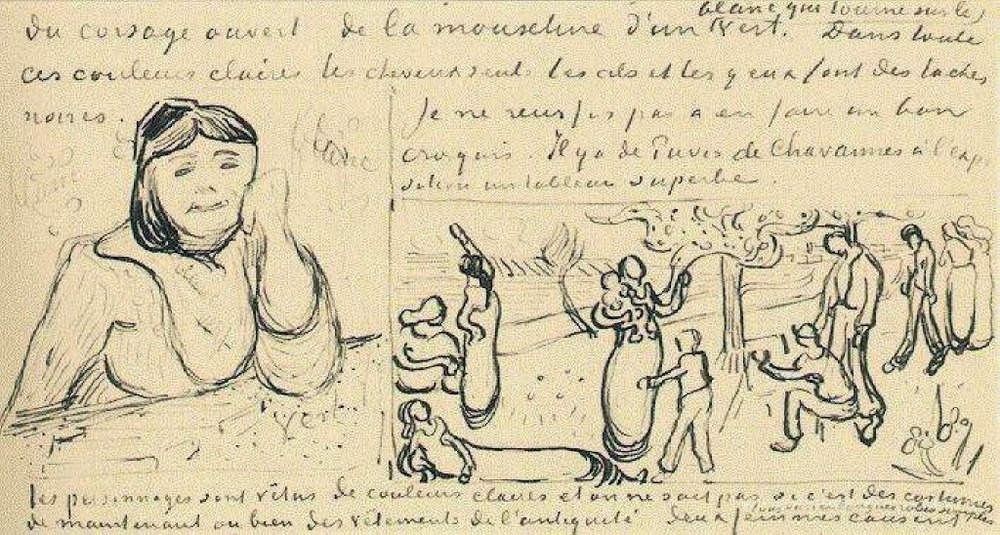 blanc qui tourne sur les
du corsage ouvert de la mousseline d'un vert. Dans toute
ces couleurs claires les cheveux seuls les cils et les yeux font des taches
noires.
Je ne reussis pas a en faire un bon
croquis. Il y a de Puvis de Chavannes à l'expo
sition un tableau superbe.
blanc
vert
les personnages sont vêtus de couleurs claires et on ne sait pas si c'est des costumes
de maintenant ou bien des vêtements de l'antiquité deux femmes causent